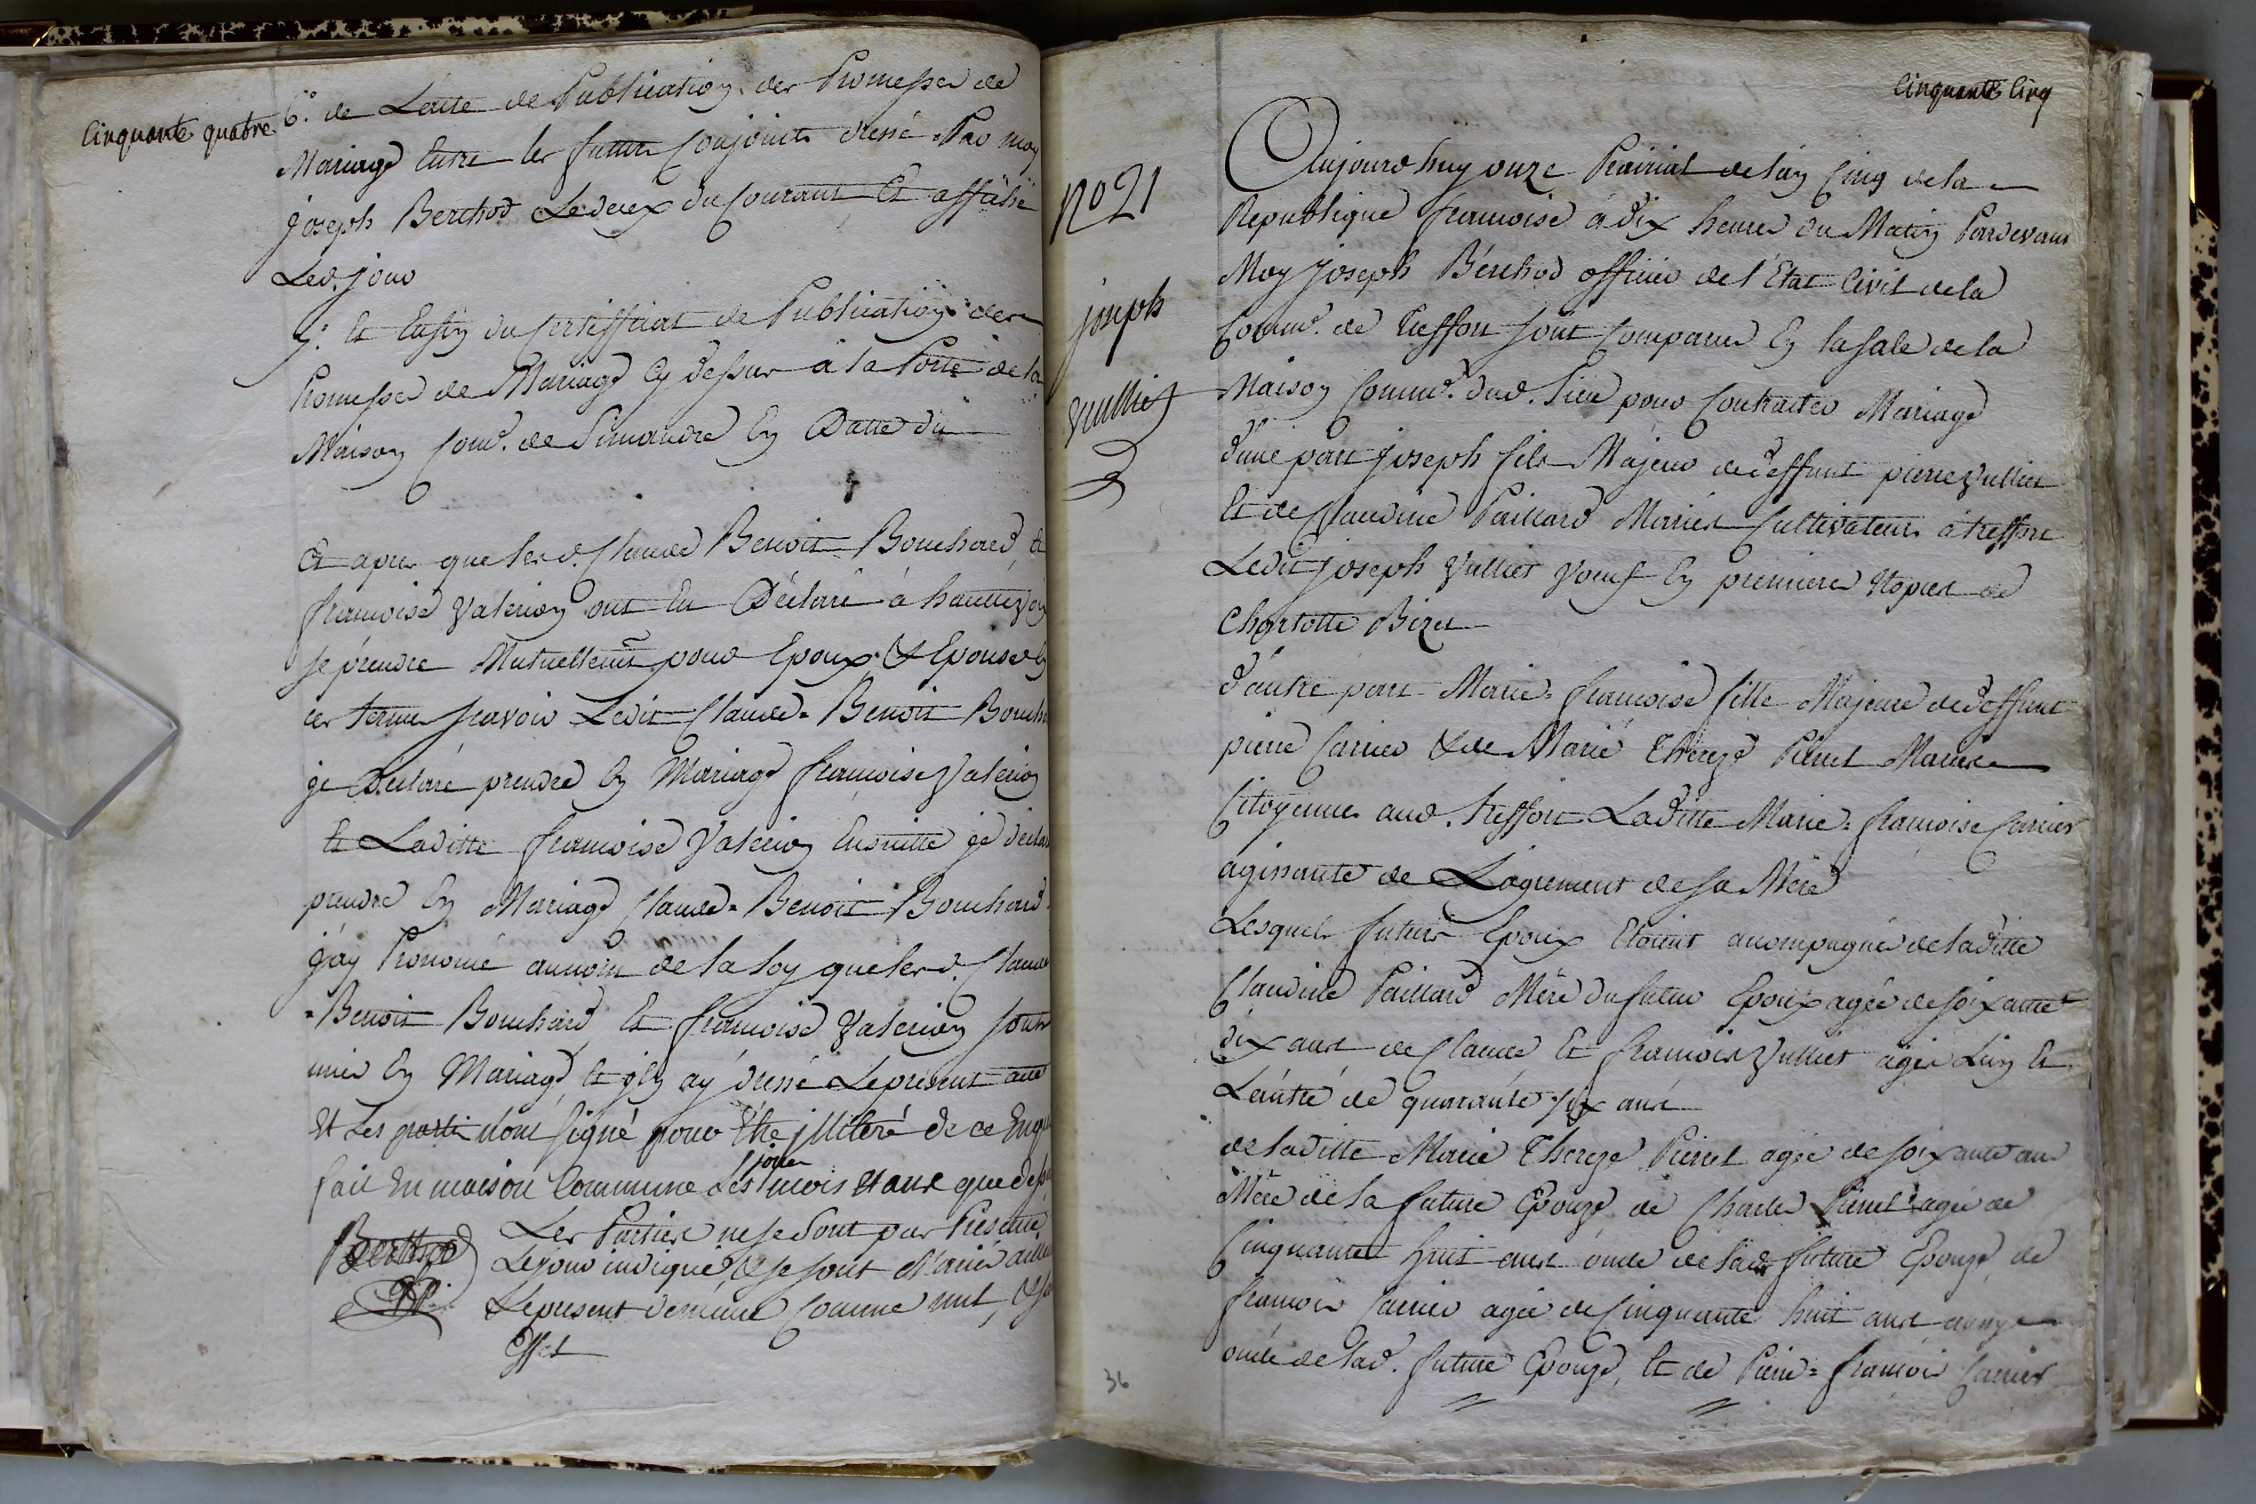 Cinquante quatre
6.° de Lacte de Publication des Promesses de
Mariage Entre les futurs Conjoints dressé Par moy
joseph Berthod Le deux du Courant Et affiché
Led. jour
7.° Et Enfin du Certifficat de Publication des
Promesses de Mariage Cy dessus à la Porte de la
Maison Com.e de Simandre En Datte du
Et apres que lesd. Claude Benoit Bouchard, Et
francoise Valerion ont Eu Déclaré à hautte voix
se prendre Mutuellement pour Epoux & Epouse En
ces termes scavoir Ledit Claude=Benoit Bouch
je Déclare prendre En Mariage francoise Valerion
Et Laditte francoise Valerion Ensuitte je déclar
prendre En Mariage Claude=Benoit Bouchard
j'ay Prononcé au nom de la loy que lesd. Claude
=Benoit Bouchard, Et francoise Valerion sont
unies En Mariage, Et j'En ay dressé Le présent acte
Et Les parties nont signé pour Etre jlliteré de ce Enqui
fait En maison Commune Les jour mois Et ans que dessu
Berthod
Les Parties ne se sont pas Présenté
Le jour indiqué, & se sont Mariés
Le present demeure Comme nul, & sa
Effet
Cinquante Cinq
N° 21
joseph
vulliet
Aujourdhuy onze Prairial de l'an Cinq de la
Republique francoise à dix heures du Matin Pardevant
Moy joseph Berthod officier de l'Etat Civil de la
Comm.e de Treffort sont Comparus En la sale de la
Maison Comm.e dud. Lieu pour Contracter Mariage
d'une part joseph fils Majeur de deffunt pierre Vulliet
Et de Claudine Paillard Mariés Cultivateurs à treffort
Ledit joseph Vulliet Voeuf En premiere Nopces de
Charlotte Bizet
d'autre part Marie=francoise fille Majeure de deffunt
pierre Carrier & de Marie Thereze Perret Mariés
Citoyenne aud. treffort Laditte Marie=francoise Carrier
agissante de L'agrement de sa Mére
Lesquels futurs Epoux Etoient acompagné de laditte
Claudine Paillard Mére du futur Epoux agée de soixante
dix ans de Claude Et francois Vulliet agés L'un Et
L'autre de quarante six ans
de laditte Marie Thereze Perret agée de soixante ans
Mére de la future Epouze de Charles Perret agée de
Cinquante huit ans oncle de lad. future Epouze, de
francois Carrier agée de Cinquante huit ans aussy
oncle de lad. future Epouze, Et de Pierre=francois Carrier
36